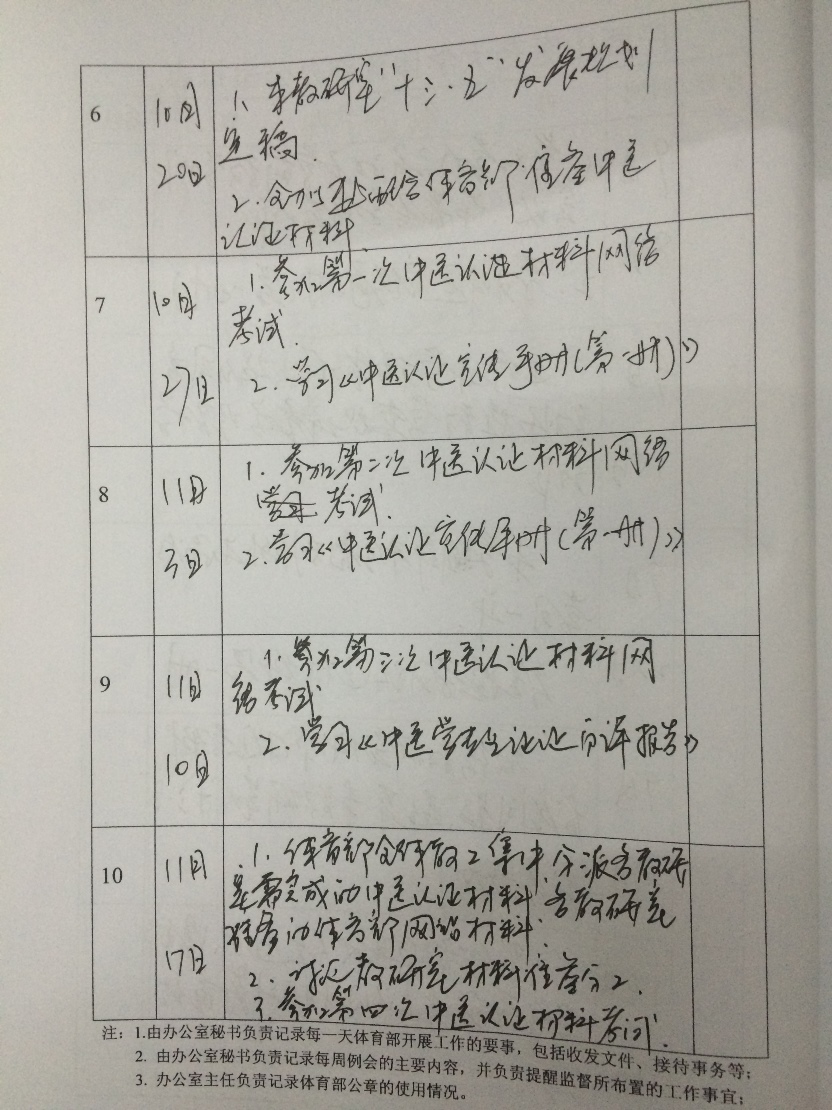 6
10月
20日
1、本教研室“十三·五”发展规划
定稿.
2.全力以赴配合体育部准备中医
认证材料
7
10月
27日
1.参加第一次中医认证材料网络
考试.
2.学习《中医认证宣传手册(第一册)》
8
11月
3日
1.参加第二次中医认证材料网络
考试.
2.学习《中医认证宣传手册(第一册)》
9
11月
10日
1.参加第三次中医认证材料网
络考试
2.学习《中医学专业认证自评报告》
10
11月
17日
1.体育部全体教工集中,分派各教研
室需完成的中医认证材料,各教研室
准备的体育部网络材料.
2.讨论教研室材料准备分工.
3.参加第四次中医认证材料考试.
注：1.由办公室秘书负责记录每一天体育部开展工作的要事，包括收发文件、接待事务等；
2. 由办公室秘书负责记录每周例会的主要内容，并负责提醒监督所布置的工作事宜；
3. 办公室主任负责记录体育部公章的使用情况。